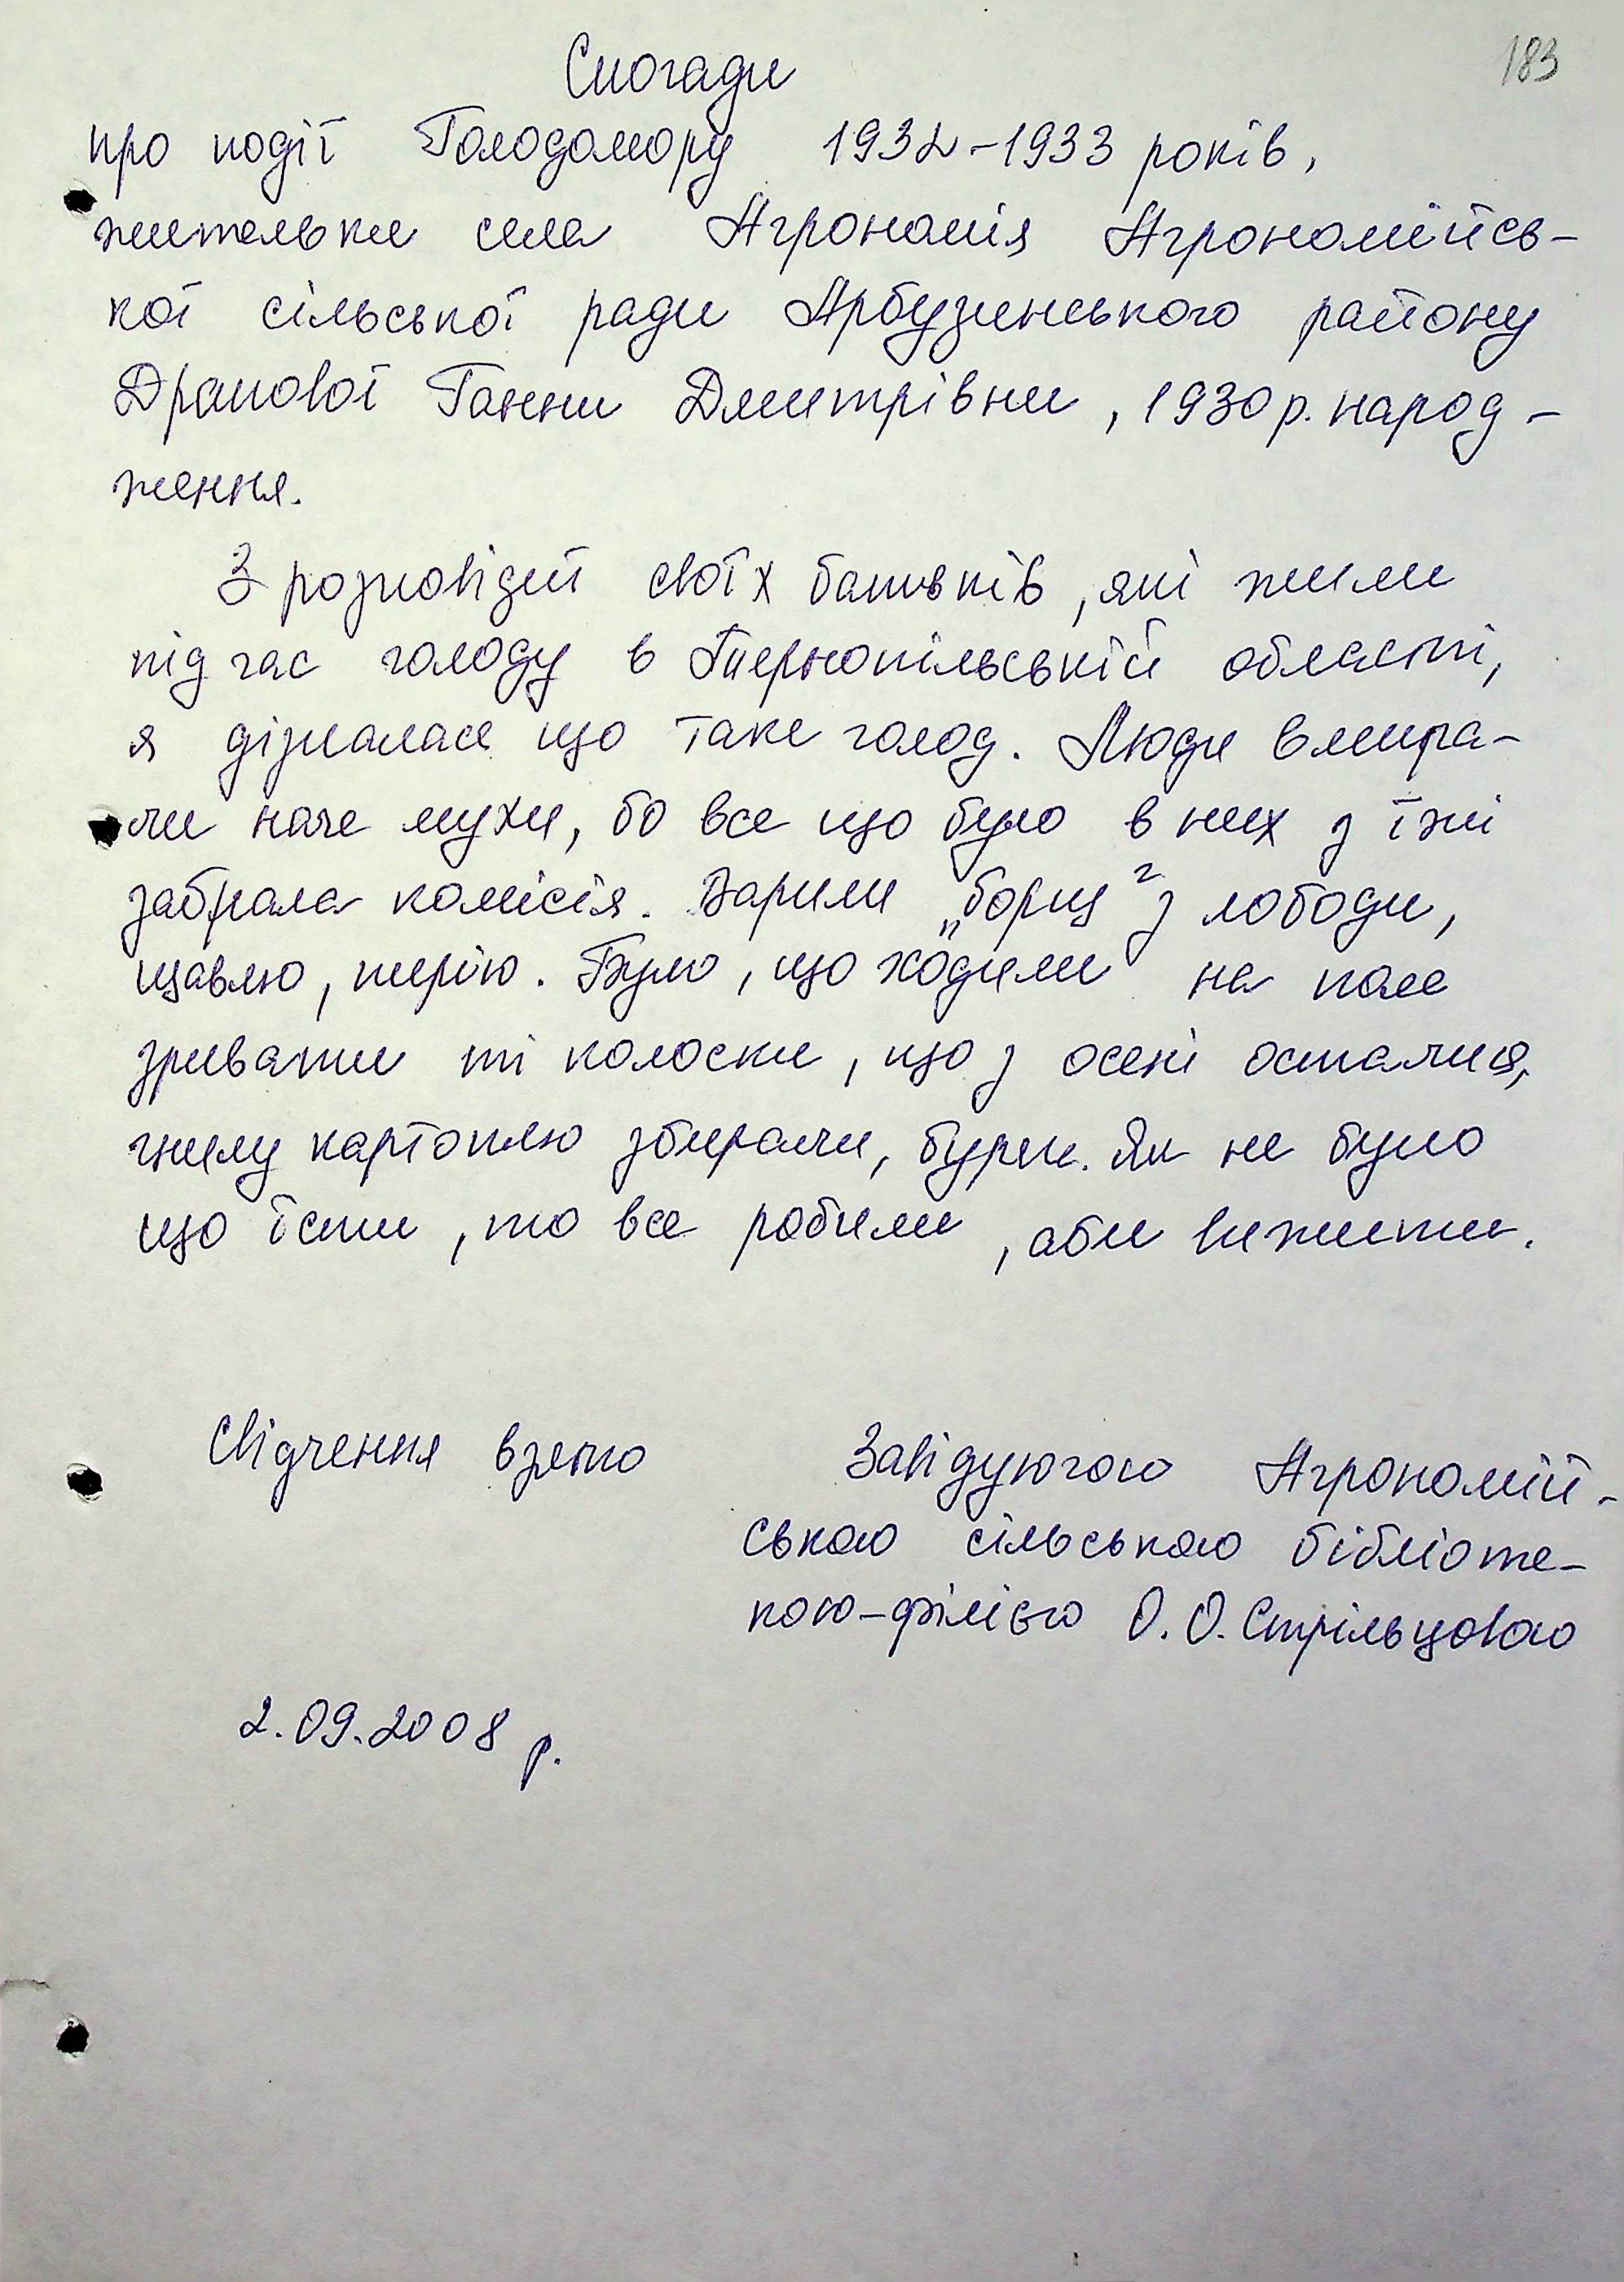 183
Спогади
про події Голодомору 1932-1933 років,
жительки села Агрономія Агрономійсь-
кої сільської ради Арбузинського району
Драпової Ганни Дмитрівни, 1930 р. народ-
ження.
З розповідей своїх батьків, які жили
під час голоду в Тернопільській області,
я дізналася що таке голод. Люди вмира-
ли наче мухи, бо все що було в них з їжі
забрала комісія. Варили „борщ" з лободи,
щавлю, пирію. Було, що ходили на поле
зривати ті колоски, що з осені остались,
гнилу картоплю збирали, буряк. Як не було
що їсти, то все робили, аби вижити.
Свідчення взято Завідуючою Агрономій-
ською сільською бібліоте-
кою-філією О. О. Стрільцовою
2.09.2008 р.